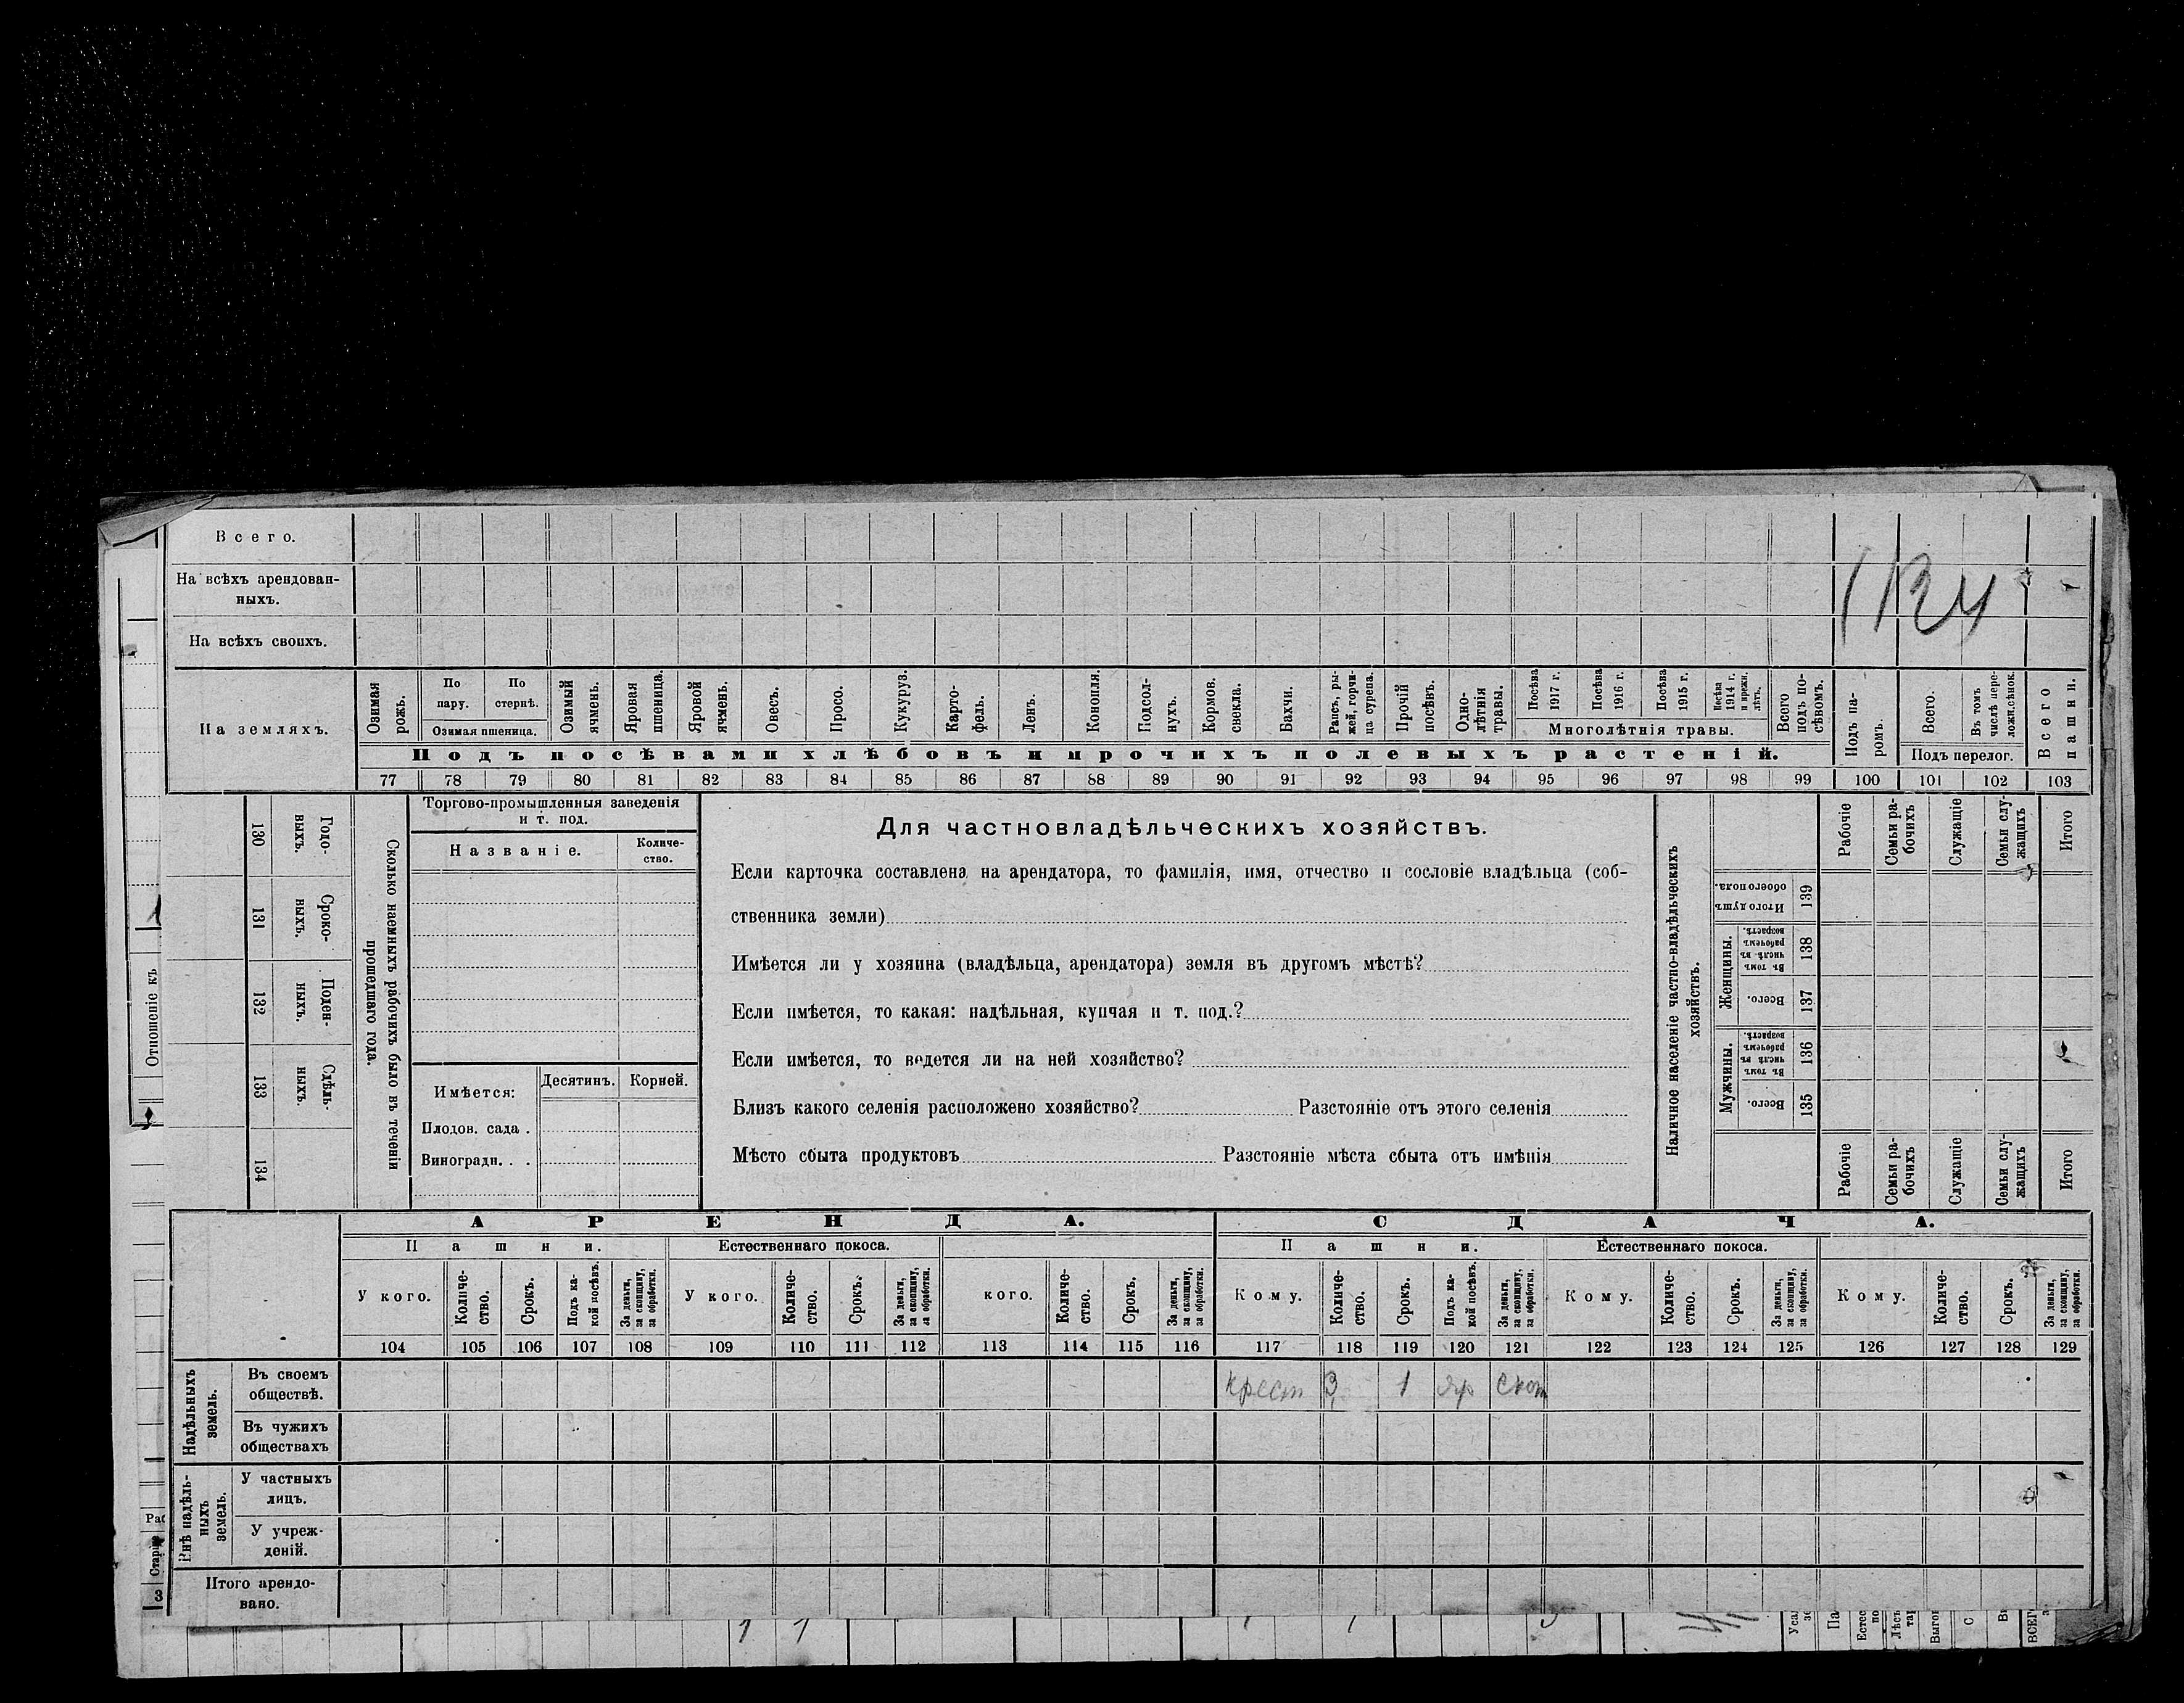 Всего.
На всѣхъ арендован-
ныхъ.
1124
На всѣхъ своихъ.
На земляхъ.
Озимая рожь.
По пару.
По стернѣ.
Озимая пшеница.
Озимый ячмень.
Яровая пшеница.
Яровой ячмень.
Овесъ.
Просо.
Кукуруз.
Карто-
фель.
Ленъ.
Конопля.
Подсол-
нухъ.
Кормов. свекла.
Бахчи.
Рапсъ, ры-
жей, горчи-
ца сурепа.
Прочій посѣвъ.
Одно-
лѣтнія травы.
Посѣва 1917 г.
Посѣва 1916 г.
Посѣва 1915 г.
Посѣва 1914 г. и прежн. лѣтъ.
Многолѣтнія травы.
Всего подъ по-
сѣвомъ.
Подъ па-
ромъ.
Всего.
Въ томъ числѣ пере-
ложн.сѣнок.
Подъ перелог.
Всего пашни.
Подъ посѣвами хлѣбовъ и прочихъ полевыхъ растеній.
77 78 79 80 81 82 83 84 85 86 87 88 89 90 91 92 93 94 95 96 97 98 99 100 101 102 103
130 Годо-
выхъ.
131 Сроко-
ныхъ.
132 Поден-
ныхъ.
133 Сдѣль-
ныхъ.
134
Сколько наемныхъ рабочихъ было въ теченіи
прошедшаго года.
Торгово-промышленныя заведенія
и т. под.
Названіе.
Количе-
ство.
Имѣется:
Десятинъ.
Корней.
Плодов. сада .
Виноградн. . .
Для частновладѣльческихъ хозяйствъ.
Если карточка составлена на арендатора, то фамилія, имя, отчество и сословіе владѣльца (соб-
ственника земли)
Имѣется ли у хозяина (владѣльца, арендатора) земля въ другомъ мѣстѣ?
Если имѣется, то какая: надѣльная, купчая и т. под.?
Если имѣется, то ведется ли на ней хозяйство?
Близъ какого селенія расположено хозяйство? Разстояніе отъ этого селенія
Мѣсто сбыта продуктовъ Разстояніе мѣста сбыта отъ имѣнія
Наличное населеніе частно-владѣльческихъ
хозяйствъ.
Рабочіе
Семьи ра-
бочихъ
Служащіе
Семьи слу-
жащихъ
Итого
Итого душъ обоего пола. 139
Женщины.
Въ томъ числѣ въ рабочемъ возрастѣ. 138
Всего. 137
Мужчины.
Въ томъ числѣ въ рабочемъ возрастѣ. 136
Всего. 135
Рабочіе
Семьи ра-
бочихъ
Служащіе
Семьи слу-
жащихъ
Итого
АРЕНДА.
СДАЧА.
Пашни.
Естественнаго покоса.
Пашни.
Естественнаго покоса.
У кого.
Количе-
ство.
Срокъ.
Подъ ка-
кой посѣвъ.
За деньги, за скопщину, за обработки.
У кого.
Количе-
ство.
Срокъ.
За деньги, за скопщину, за обработки.
кого.
Количе-
ство.
Срокъ.
За деньги, за скопщину, за обработки.
Кому.
Количе-
ство.
Срокъ.
Подъ ка-
кой посѣвъ.
За деньги, за скопщину, за обработки.
Кому.
Количе-
ство.
Срокъ.
За деньги, за скопщину, за обработки.
Кому.
Количе-
ство.
Срокъ.
За деньги, за скопщину, за обработки.
104 105 106 107 108 109 110 111 112 113 114 115 116 117 118 119 120 121 122 123 124 125 126 127 128 129
Надѣльныхъ земель.
Въ своемъ
обществѣ.
Крест 3 1 яр Скоп
Въ чужихъ
обществахъ
Внѣ надѣль-
ныхъ земель.
У частныхъ
лицъ.
У учреж-
деній.
Итого арендо-
вано.
Отношеніе къ